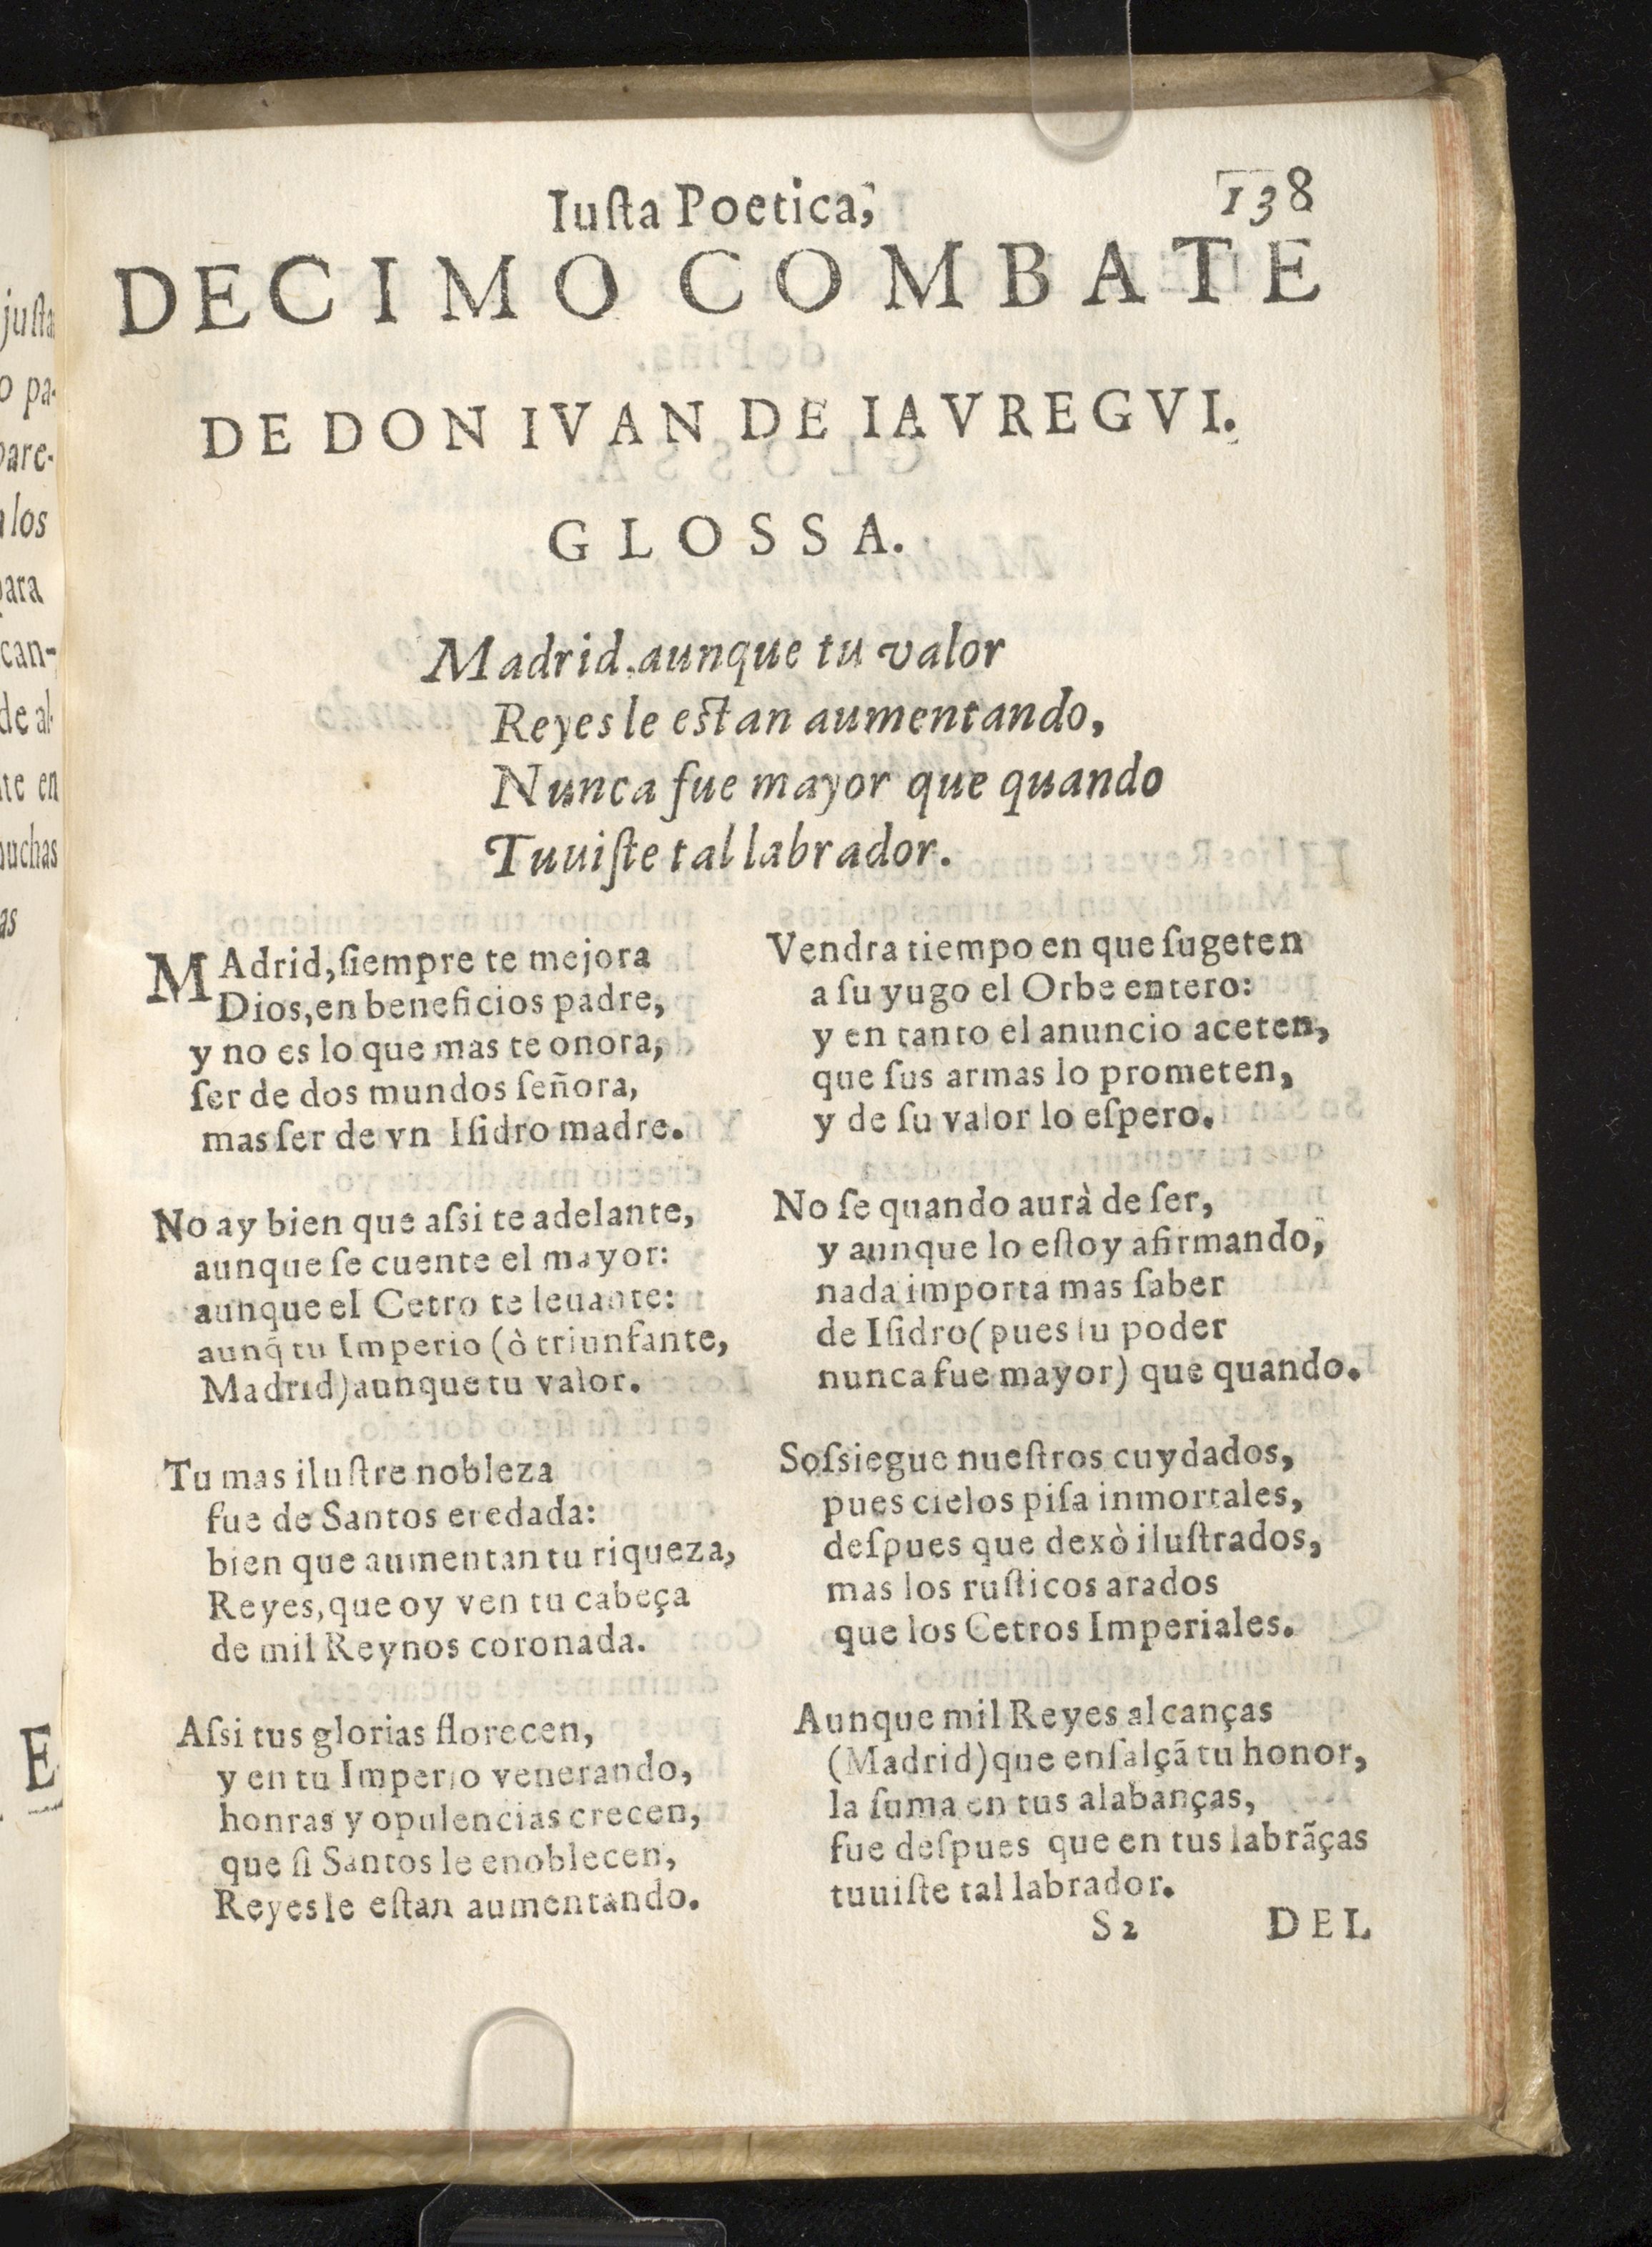 Iuſta Poetica, 138
DECIMO COMBATE
DE DON IVAN DE IAVREGVI.
GLOSSA.
Madrid, aunque tu valor
Reyes le eſtan aumentando,
Nunca fue mayor que quando
Tuuiſte tal labrador.
MAdrid, ſiempre te mejora
Dios, en beneficios padre,
y no es lo que mas te onora,
ſer de dos mundos ſeñora,
mas ſer de vn Iſidro madre.
No ay bien que aſsi te adelante,
aunque ſe cuente el mayor:
aunque el Cetro te leuante:
aunq̃ tu Imperio (ò triunfante,
Madrid) aunque tu valor.
Tu mas iluſtre nobleza
fue de Santos eredada:
bien que aumentan tu riqueza,
Reyes, que oy ven tu cabeça
de mil Reynos coronada.
Aſsi tus glorias florecen,
y en tu Imperio venerando,
honras y opulencias crecen,
que ſi Santos le enoblecen,
Reyes le eſtan aumentando.
Vendra tiempo en que ſugeten
a ſu yugo el Orbe entero:
y en tanto el anuncio aceten,
que ſus armas lo prometen,
y de ſu valor lo eſpero.
No ſe quando aurà de ſer,
y aunque lo eſtoy afirmando,
nada importa mas ſaber
de Iſidro (pues ſu poder
nunca fue mayor) que quando.
Soſsiegue nueſtros cuydados,
pues cielos piſa inmortales,
deſpues que dexò iluſtrados,
mas los ruſticos arados
que los Cetros Imperiales.
Aunque mil Reyes alcanças
(Madrid) que enſalçã tu honor,
la ſuma en tus alabanças,
fue deſpues que en tus labrãças
tuuiſte tal labrador.
S2 DEL
juſta
o pa-
pare-
los
para
can-
de al-
te en
muchas
as
E